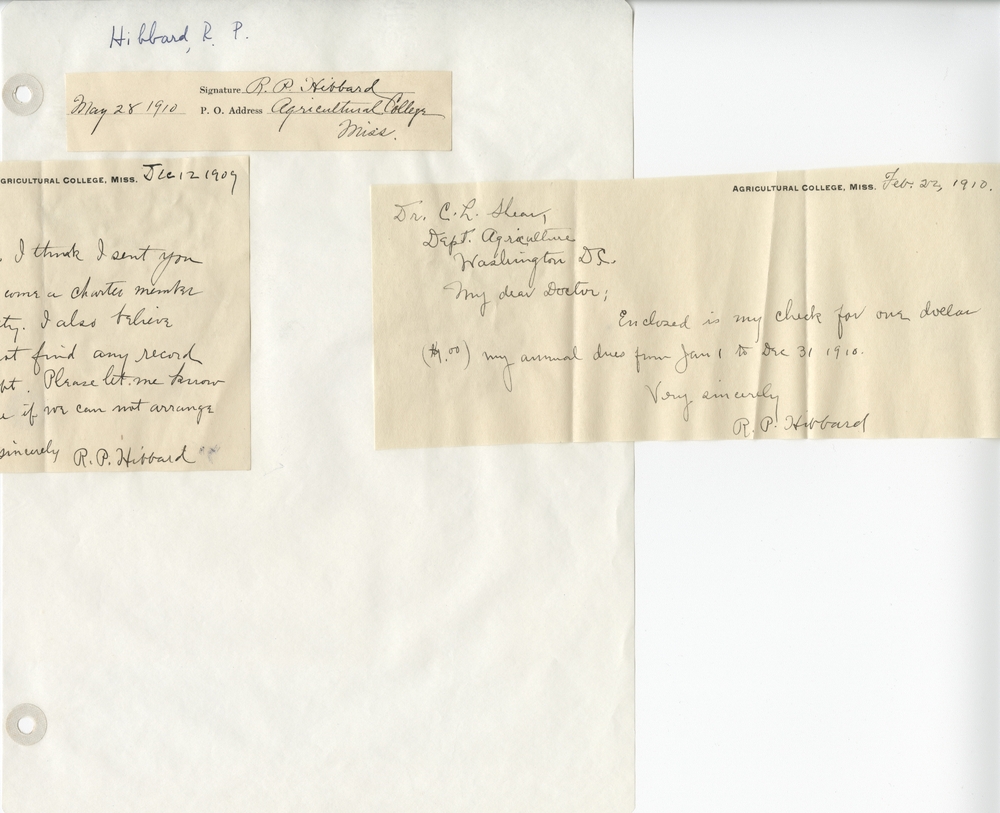 Hibbard, R. P.
Signature R. P. Hibbard
May 28 1910 P. O. Address Agricultural College
Miss.
GRICULTURAL COLLEGE, MISS. Dec 12 1909
. I think I sent you
come a charter member
ty. I also believe
st find any record
pt. Please let me know
e if we can not arrange
sincerely R. P. Hibbard
AGRICULTURAL COLLEGE, MISS. Feb. 22, 1910.
Dr. C. L. Shear,
Dept. Agriculture
Washington D.C.
My dear Doctor;
Enclosed is my check for one dollar
($1.00) my annual dues from Jan 1 to Dec 31 1910.
Very sincerely
R. P. Hibbard